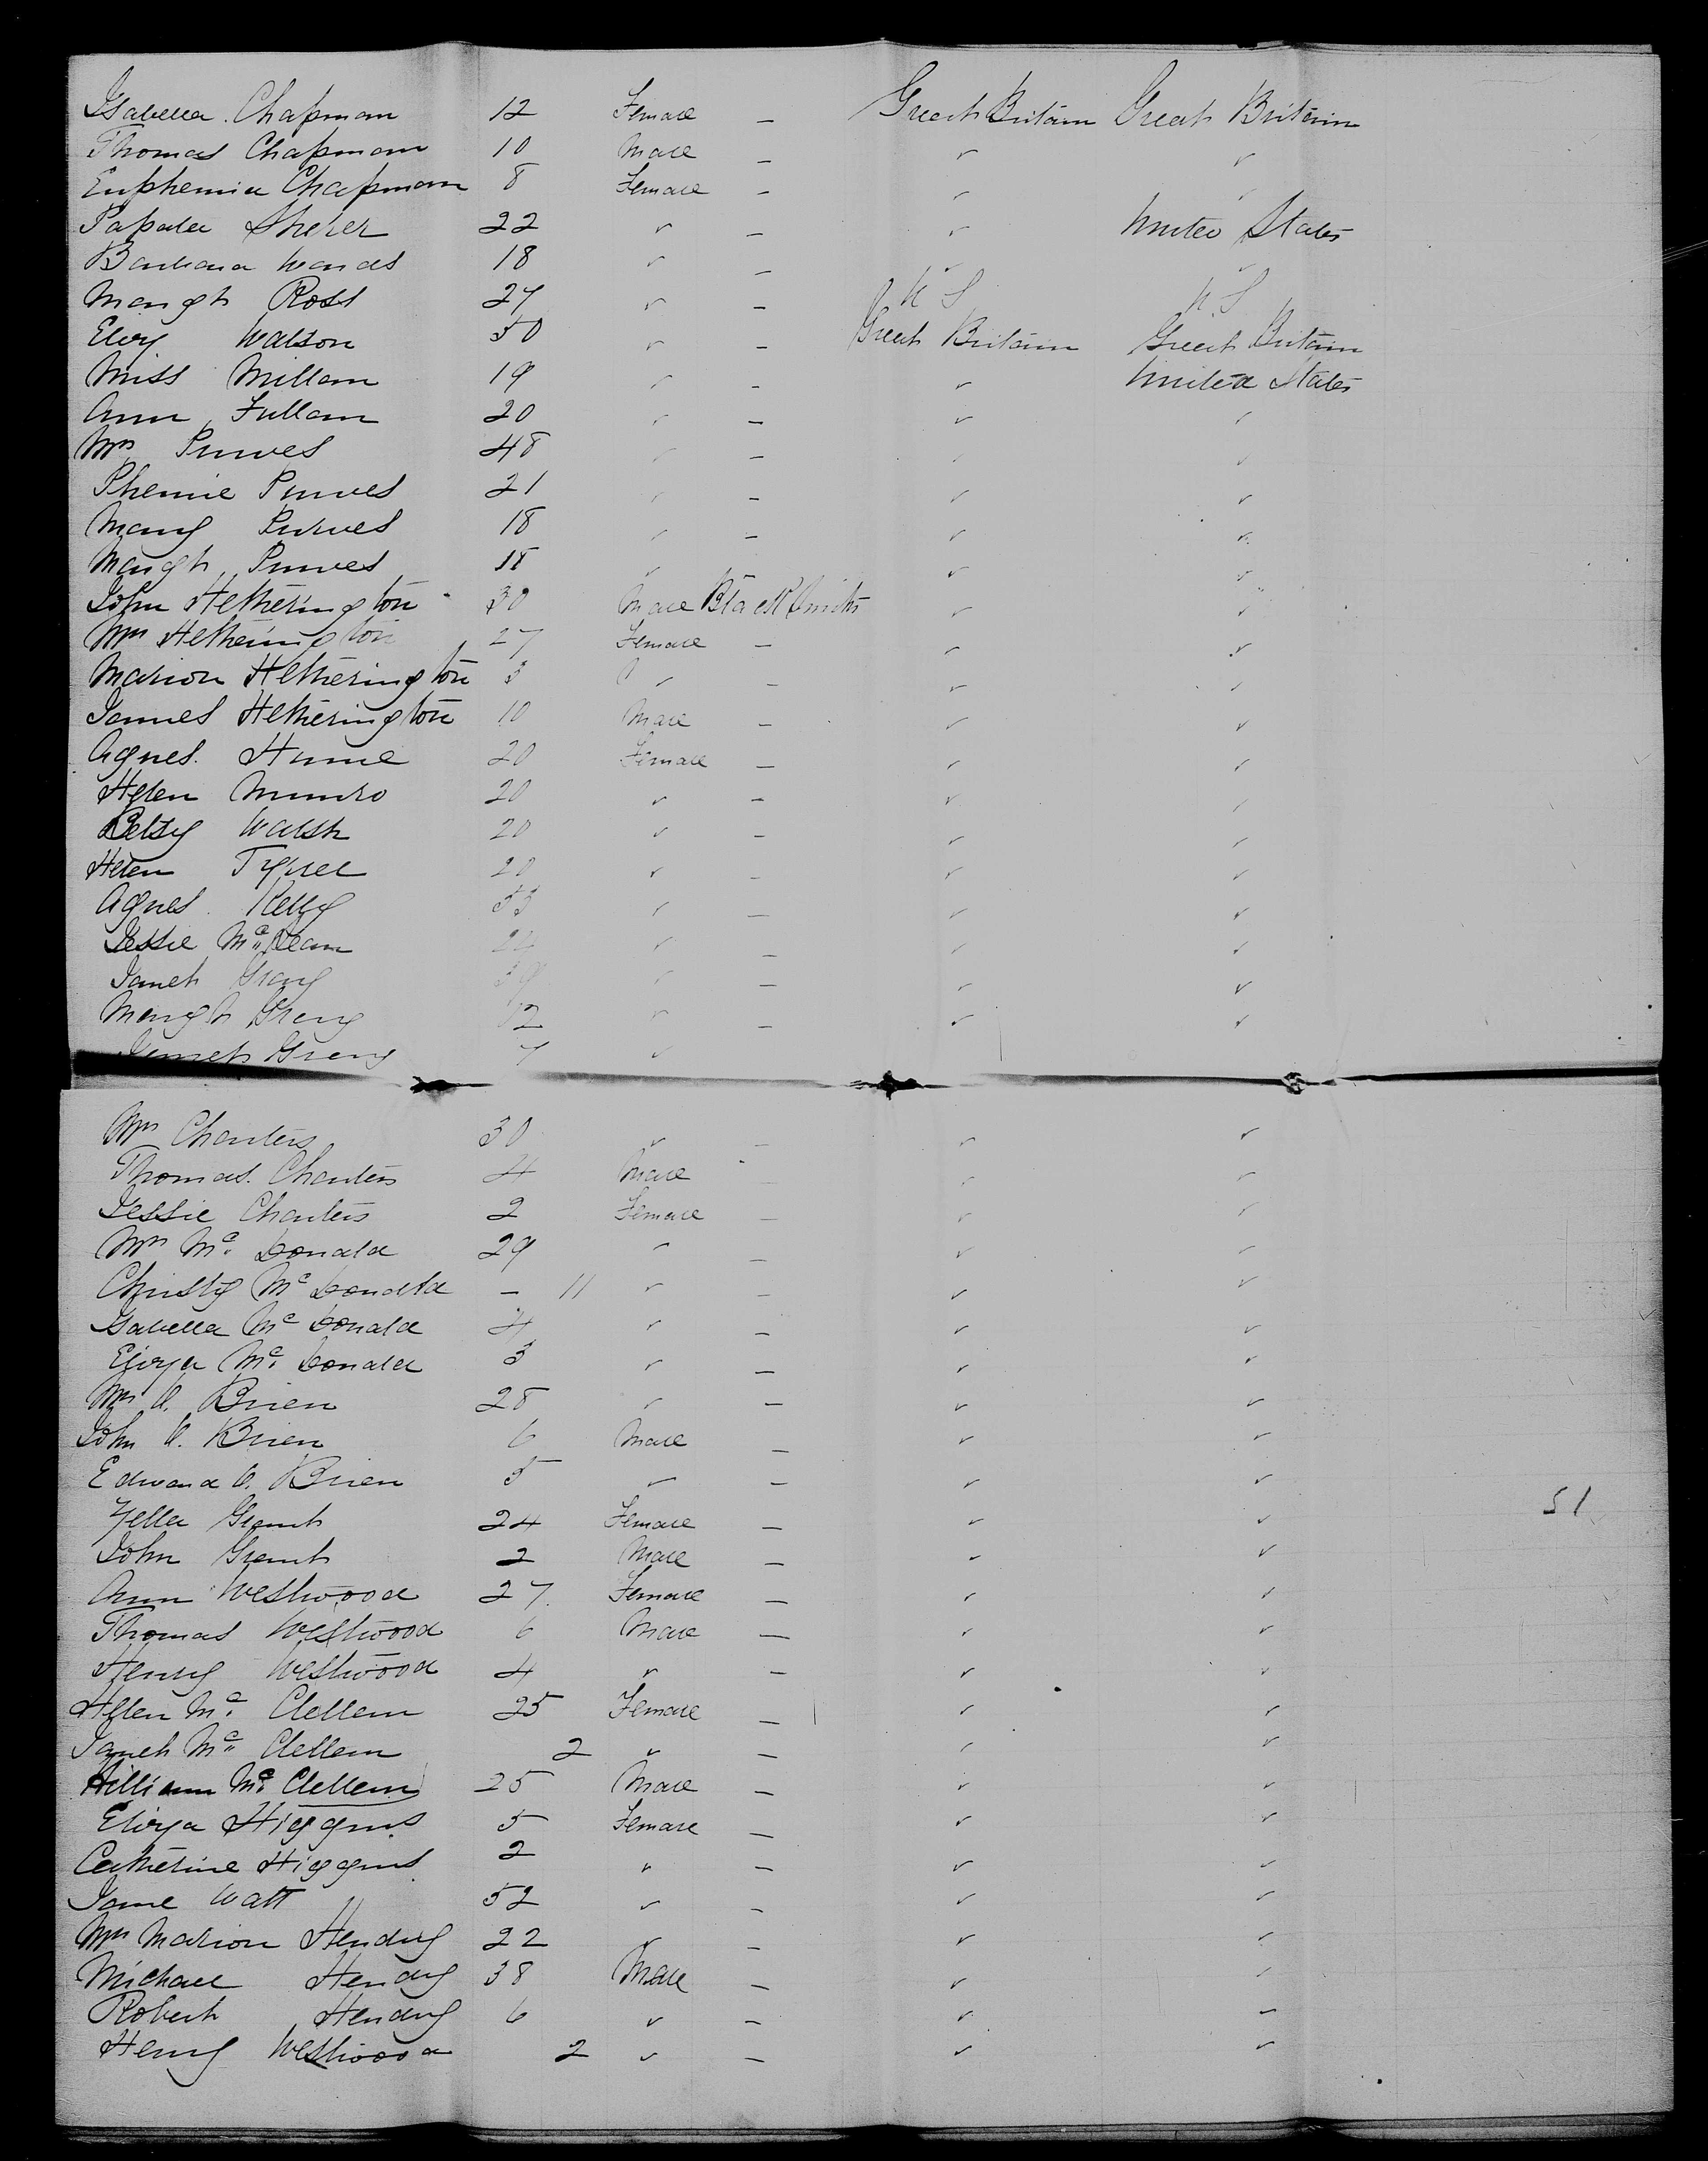 Isabella Chapman 12 Female — Great Britain Great Britain
Thomas Chapman 10 Male — " "
Euphemia Chapman 8 Female — " "
Sherer 22 " — " United States
Barbara Wands 18 " — " "
Margt Ross 27 " — U S U S
Watson 50 " — Great Britain Great Britain
Miss Millam 19 " — " United States
Ann Fullam 20 " — " "
Mrs Purves 48 " — " "
Phemie Purves 21 " — " "
Mary Purves 18 " — " "
Margt Purves 15 " — " "
John Hetherington 30 Male Black Smith " "
Mrs Hetherington 27 Female — " "
Marion Hetherington 3 " — " "
James Hetherington 10 Male — " "
Agnes Hume 20 Female — " "
Helen Munro 20 " — " "
Betsy Walsh 20 " — " "
Helen 20 " — " "
Agnes Kelly 53 " — " "
Jessie Mc. 24 " — " "
Janet Gray 39 " — " "
Margt Gray 12 " — " "
Gray 7 "
Mrs Charters 30 " — " "
Thomas Charters 4 Male — " "
Jessie Charters 2 Female — " "
Mrs Mc. Donald 29 " — " "
Christy Mc Donald — 11 " — " "
Isabella Mc Donald 4 " — " "
Eliza Mc. Donald 3 " — " "
Mrs O. Brien 28 " — " "
John O. Brien 6 Male — " "
Edward O. Brien 5 " — " "
Grant 24 Female — " " 51
John Grant 2 Male — " "
Ann Westwood 27 Female — " "
Thomas Westwood 6 Male — " "
Henry Westwood 4 " — " "
Helen Mc. Clellem 25 Female — " "
Janet Mc. Clellem 2 " — " "
William Mc. Clellem 25 Male — " "
Eliza Higgins 5 Female — " "
Catherine Higgins 2 " — " "
Jane Watt 52 " — " "
Mrs Marion Hendry 22 " — " "
Michael Hendry 38 Male — " "
Robert Hendry 6 " — " "
Henry Westwood 2 " — " "